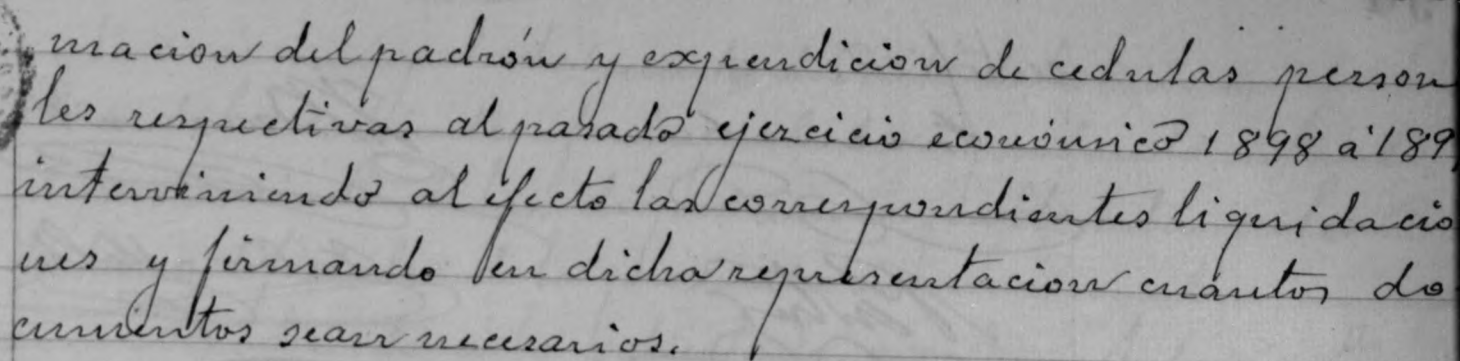 macion del padrón y expendicion de cedulas person
les respectivas al pasado ejercicio económico 1898 á 189
interviniendo al efecto las correspondientes liquidacio
nes y firmando en dicha representacion cuantos do
cumentos sean necesarios.